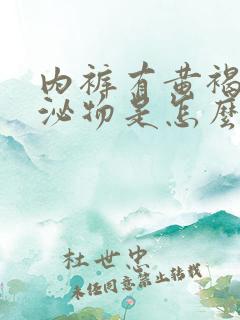 内裤有黄褐
泌物是怎麽
杜世忠
未经同意禁止转载